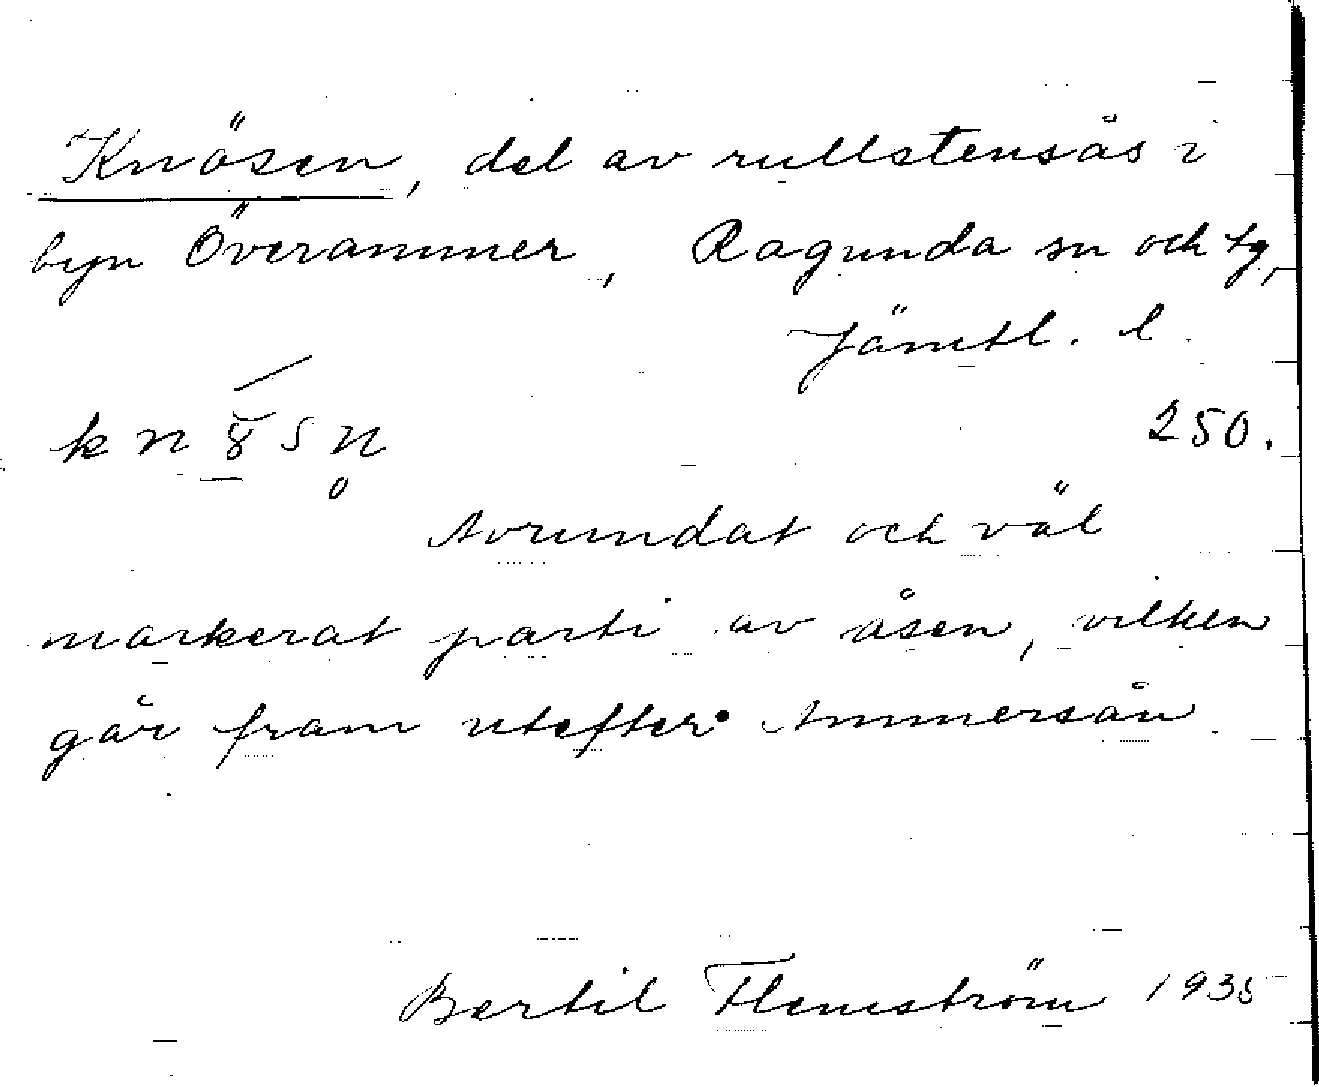 Knösen, del av rullstensås i
byn Överammer, Ragunda sn och tg,
Jämtl. l.
250.
Avrundat och väl
markerat parti av åsen, vilken
går fram utefter Ammersån
Bertil Flemström 1935